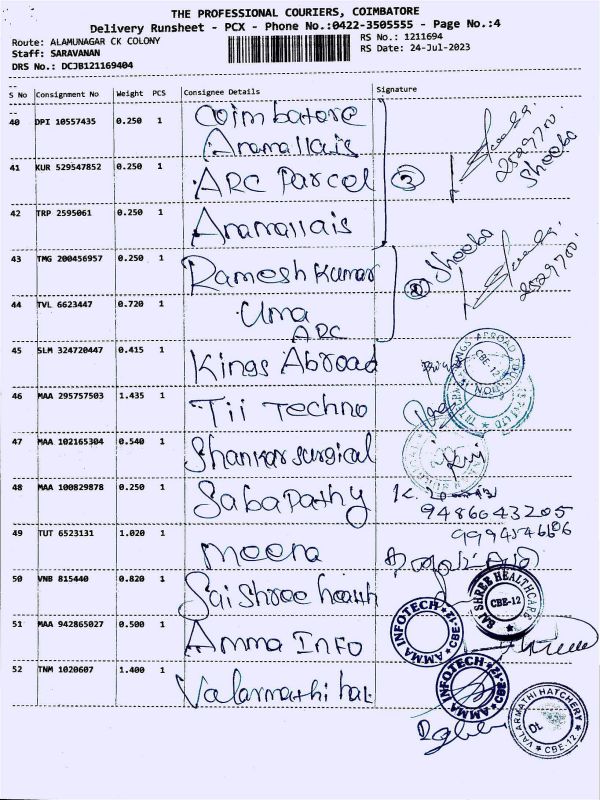 THE PROFESSIONAL COURIERS, COIMBATORE
Delivery Runsheet - PCX - Phone No.:0422-3505555 - Page No.:4
Route: ALAMUNAGAR CK COLONY
RS No.: 1211694
Staff: SARAVANAN
RS Date: 24-Jul-2023
DRS No.: DCJB121169404
S No Consignment No Weight PCS Consignee Details Signature
40 DPI 10557435 0.250 1 Coimbatore
Anamallais
41 KUR 529547852 0.250 1 ARC Parcel 3
2529700
Shooba
42 TRP 2595061 0.250 1 Anamallais
43 TMG 200456957 0.250 1 Ramesh Kumar
Shooba
2529700
44 TVL 6623447 0.720 1 Uma
ARC
45 SLM 324720447 0.415 1 Kings Abroad
KINGS ABROAD EDUCATION CBE-12
46 MAA 295757503 1.435 1 Tii Techno
47 MAA 102165304 0.540 1 Shankar surgical
48 MAA 100829878 0.250 1 Sabapathy
9486643205
49 TUT 6523131 1.020 1 Meena
50 VNB 815440 0.820 1 Sai Shree health
SAI SHREE HEALTHCARE CBE-12
51 MAA 942865027 0.500 1 Amma Info
AMMA INFOTECH CBE-12
52 TNM 1020607 1.400 1 Valarmathi hat.
AMMA INFOTECH CBE-12
VALARMATHI HATCHERY CBE-12